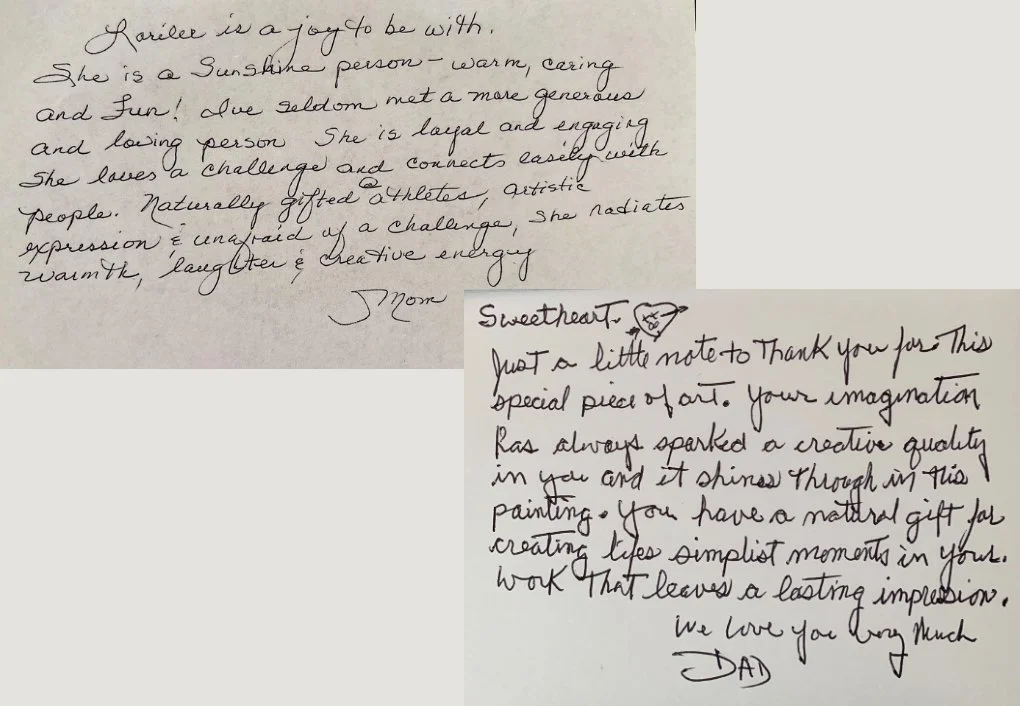 Lorilee is a joy to be with.
She is a Sunshine person - warm, caring
and Fun! I've seldom met a more generous
and loving person She is loyal and engaging
She loves a challenge and connects easily with
people. Naturally gifted @ athletes, artistic
expression & unafraid of a challenge, she radiates
warmth, laughter & creative energy
Mom
Sweetheart.
Just a little note to Thank you for This
special piece of art. Your imagination
has always sparked a creative quality
in you and it shines Through in this
painting. You have a natural gift for
creating lifes simplist moments in your.
Work That leaves a lasting impression.
We love you very Much
DAD